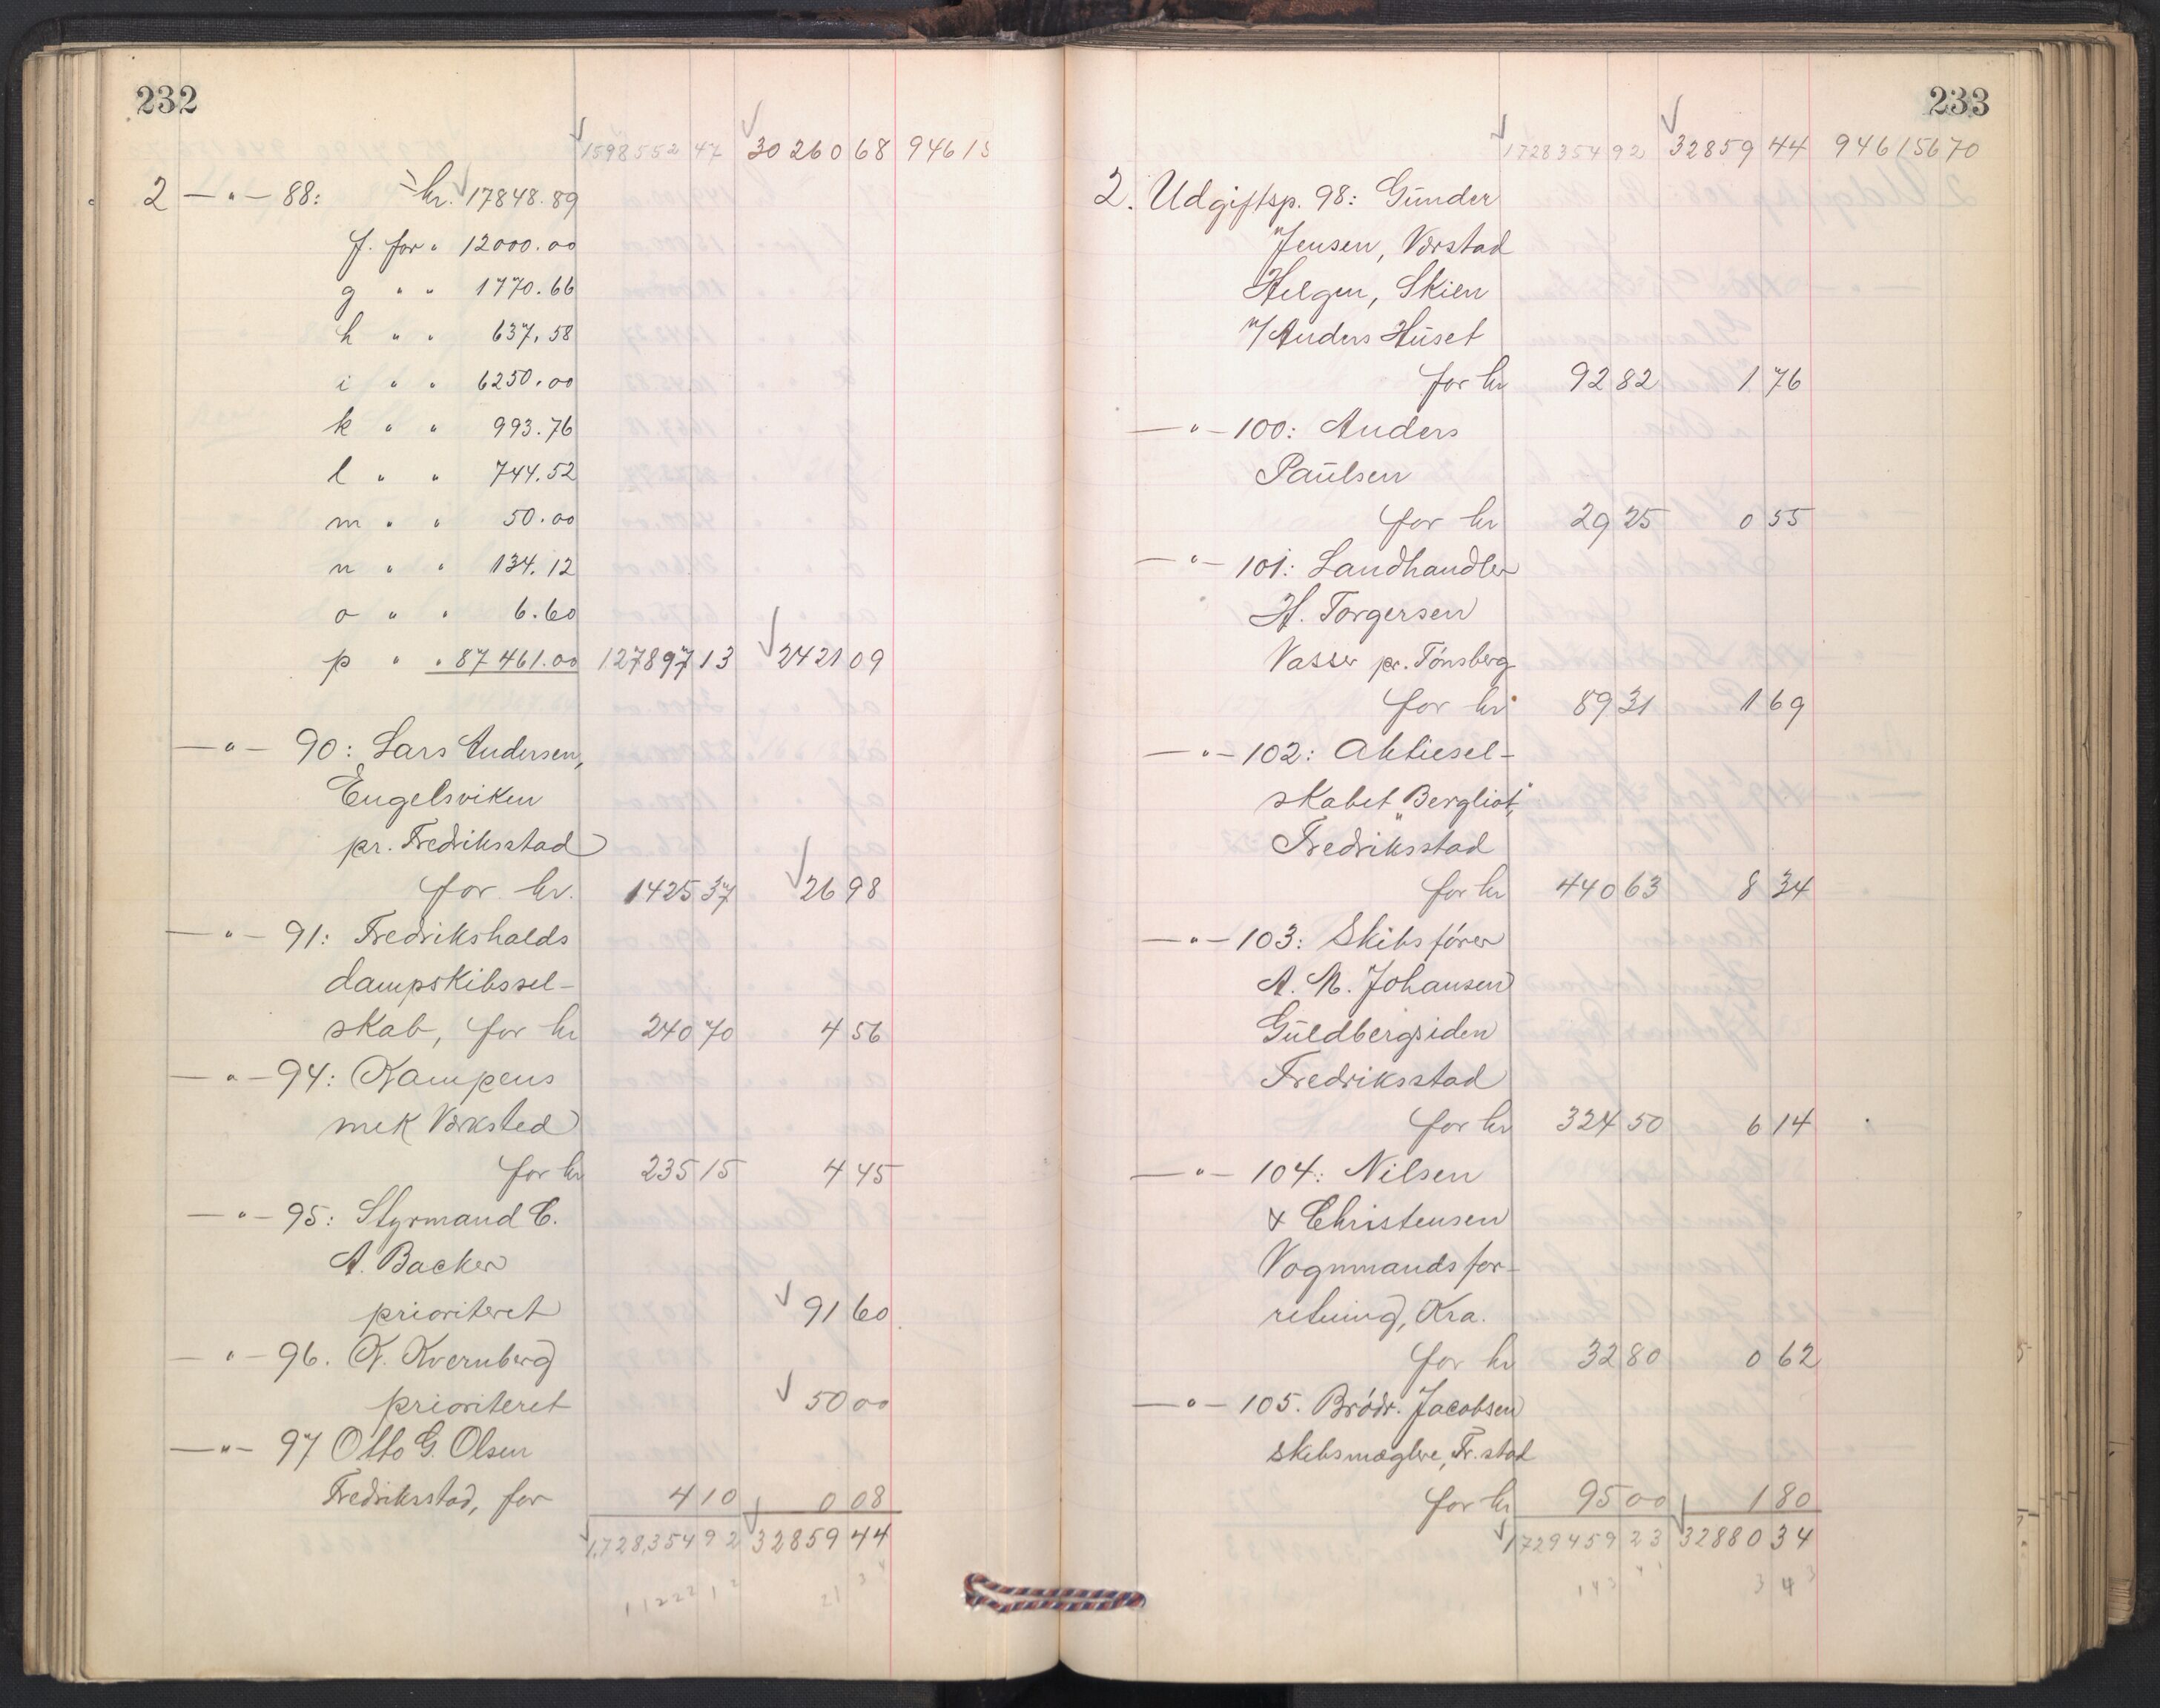 232
1598552 47 30260 68 94615
2 — " — 88: kr. 17848.89
f. for " 12000.00
g " " 1770.66
h " " 637.58
i " " 6250.00
k " " 993.76
l " " 744.52
m " " 50.00
n " " 134.12
o " " 6.60
p " " 87461.00 127897 13 2421 09
— " — 90: Lars Andersen,
Engelsviken
pr. Fredriksstad
for kr. 1425 37 26 98
— " — 91: Fredrikshalds
dampskibssel-
skab, for kr 240 70 4 56
— " — 94: Kampens
mek Værksted
for kr 235 15 4 45
— " — 95: Styrmand C.
A. Backer
prioriteret 91 60
— " — 96. K. Kvernberg
prioriteret 50 00
— " — 97 Otto G. Olsen
Fredriksstad, for 4 10 0 08
1,728,354 92 32859 44
1 1 2 2 2 1 2 2 1 3 4
233
1728354 92 32859 44 94615670
2. Udgiftsp. 98: Gunder
Jensen, Vorstad
Helgen, Skien
v/ Anders Huset
for kr 92 82 1 76
— " — 100: Anders
Paulsen
for kr 29 25 0 55
— " — 101: Landhandler
H. Torgersen
Vasser pr. Tönsberg
for kr 89 31 1 69
— " — 102: Aktiesel-
skabet „Bergliot",
Fredriksstad
for kr 440 63 8 34
— " — 103: Skibsförer
A. M. Johansen
Guldbergsiden
Fredriksstad
for kr 324 50 6 14
— " — 104: Nilsen
& Christensen
Vognmandsfor-
retning, Kra.
for kr 32 80 0 62
— " — 105. Brödr. Jacobsen
skibsmæglere, Fr.stad
for kr 95 00 1 80
1729459 23 32880 34
1 4 3 4 1 3 4 3